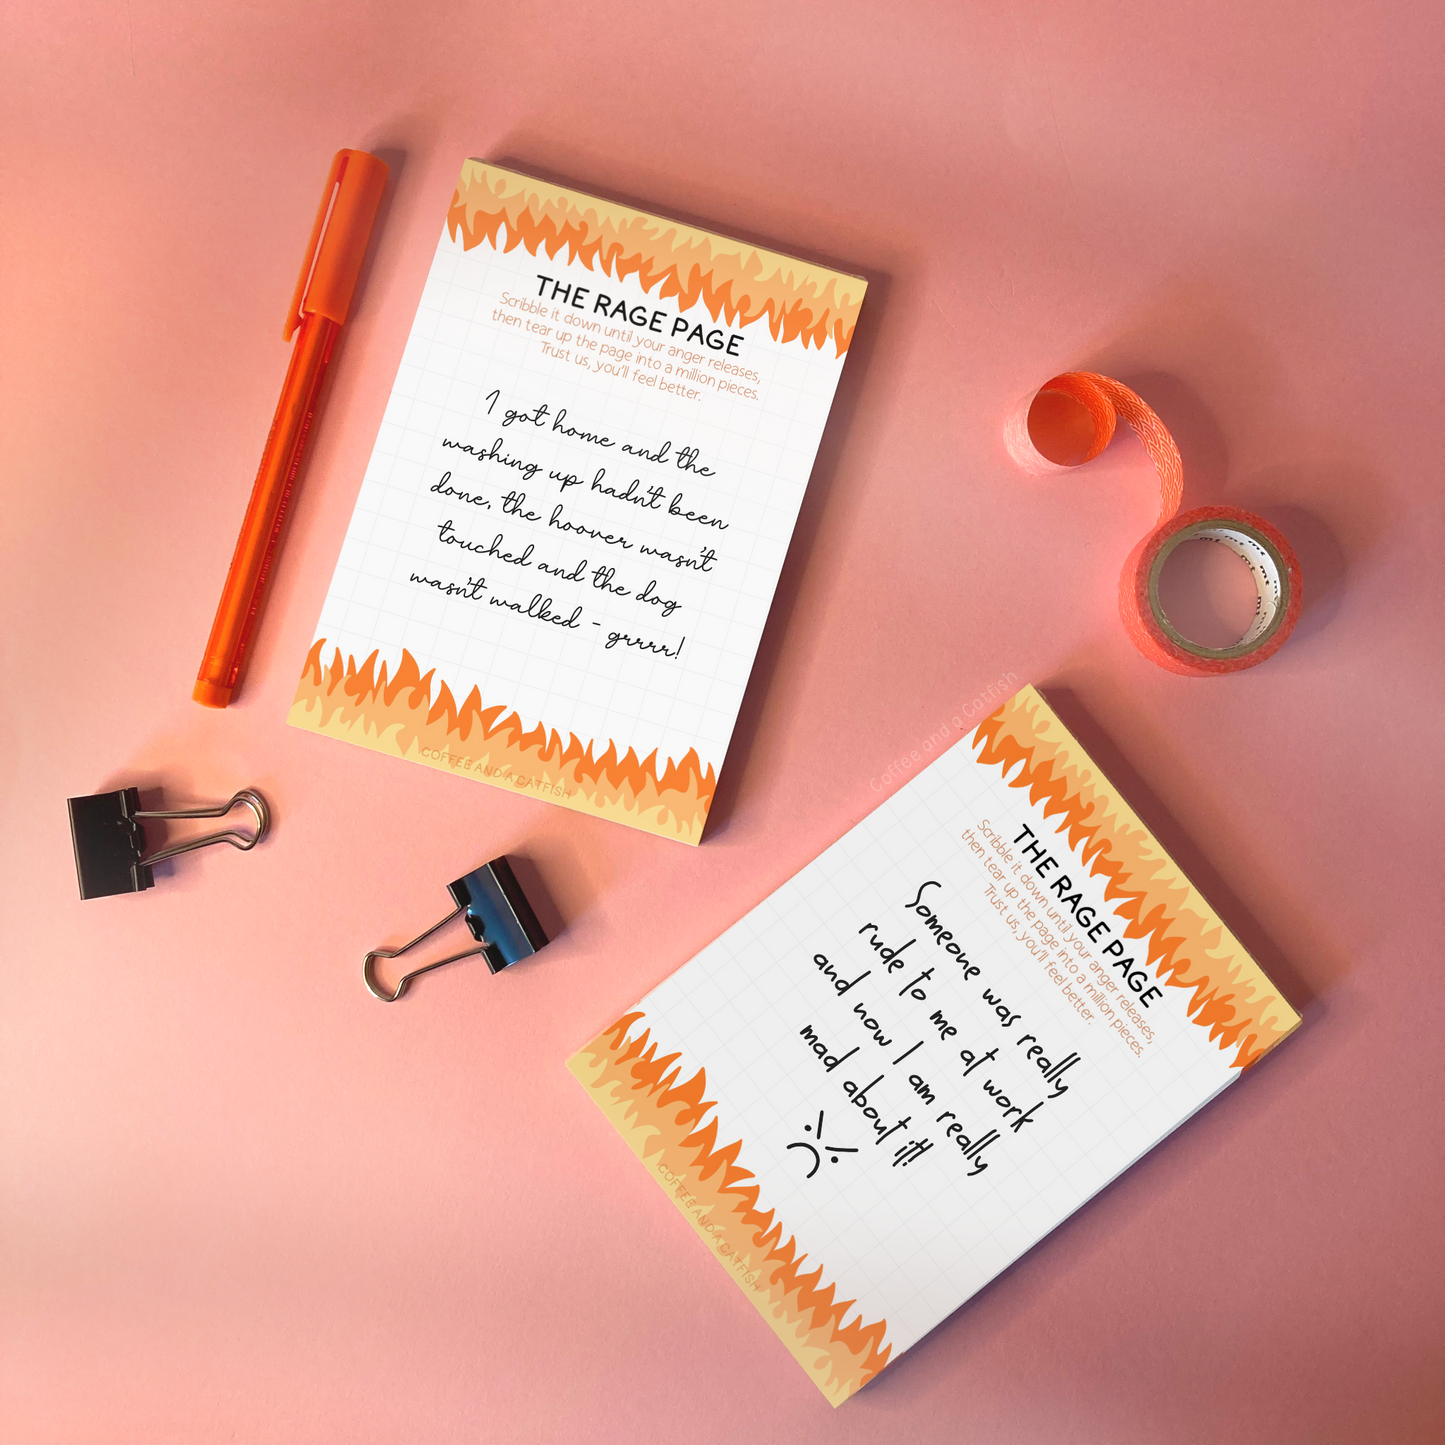 THE RAGE PAGE
Scribble it down until your anger releases,
then tear up the page into a million pieces.
Trust us, you'll feel better.
I got home and the
washing up hadn't been
done, the hoover wasn't
touched and the dog
wasn't walked - grrrr!
COFFEE AND A CATFISH
mt mt mt
Coffee and a Catfish
THE RAGE PAGE
Scribble it down until your anger releases,
then tear up the page into a million pieces.
Trust us, you'll feel better.
Someone was really
rude to me at work
and now I am really
mad about it!!
COFFEE AND A CATFISH